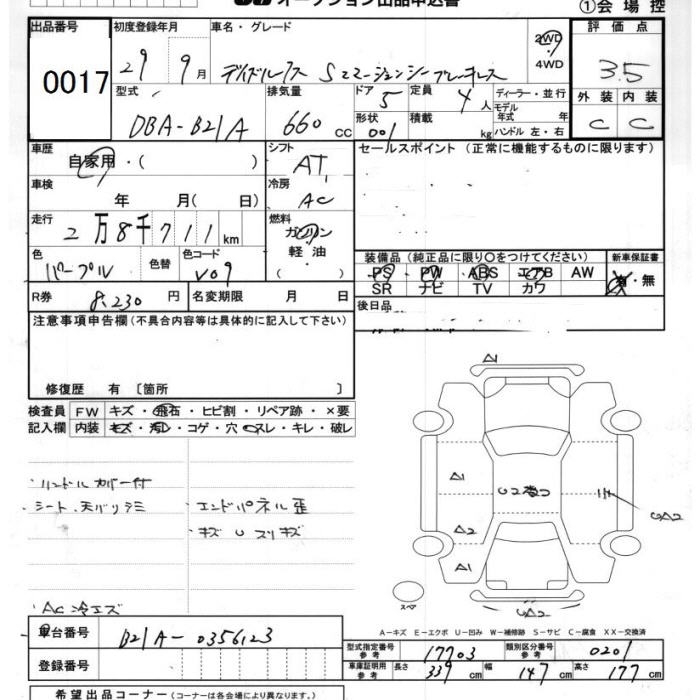 オークション出品申込書
①会場控
出品番号
0017
初度登録年月
29 9月
車名・グレード
2WD
4WD
評価点
3.5
外装 内装
C C
型式
DBA-B21A
排気量
660 cc
ドア
5
形状
001
定員
4人
積載
kg
ディーラー・並行
モデル年式 年
ハンドル 左・右
車歴
自家用・( )
シフト
AT
セールスポイント (正常に機能するものに限ります)
車検
年 月( 日)
冷房
AC
走行
2万8千711km
燃料
ガソリン
軽・油
( )
色
パープル
色替
色コード
V09
装備品 (純正品に限り○をつけてください)
新車保証書
PS PW ABS エアB AW
SR ナビ TV カワ
有・無
R券
8,230円
名変期限 月 日
後日品
注意事項申告欄 (不具合内容等は具体的に記入して下さい)
修復歴 有 〔箇所 〕
検査員記入欄
FW キズ・飛石・ヒビ割・リペア跡・×要
内装 キズ・汚れ・コゲ・穴・スレ・キレ・破レ
ハンドルカバー付
シート、天バリシミ
エンドパネル歪
キズ U スリキズ
AC冷エズ
A1
A1
A2
A1
スペア
A-キズ E-エクボ U-凹み W-補修跡 S-サビ C-腐食 XX-交換済
車台番号
B21A-0356123
登録番号
型式指定番号 参考
17703
類別区分番号 参考
0201
車庫証明用 参考
長さ 339 cm
幅 147 cm
高さ 177 cm
希望出品コーナー (コーナーは各会場により異なります。)